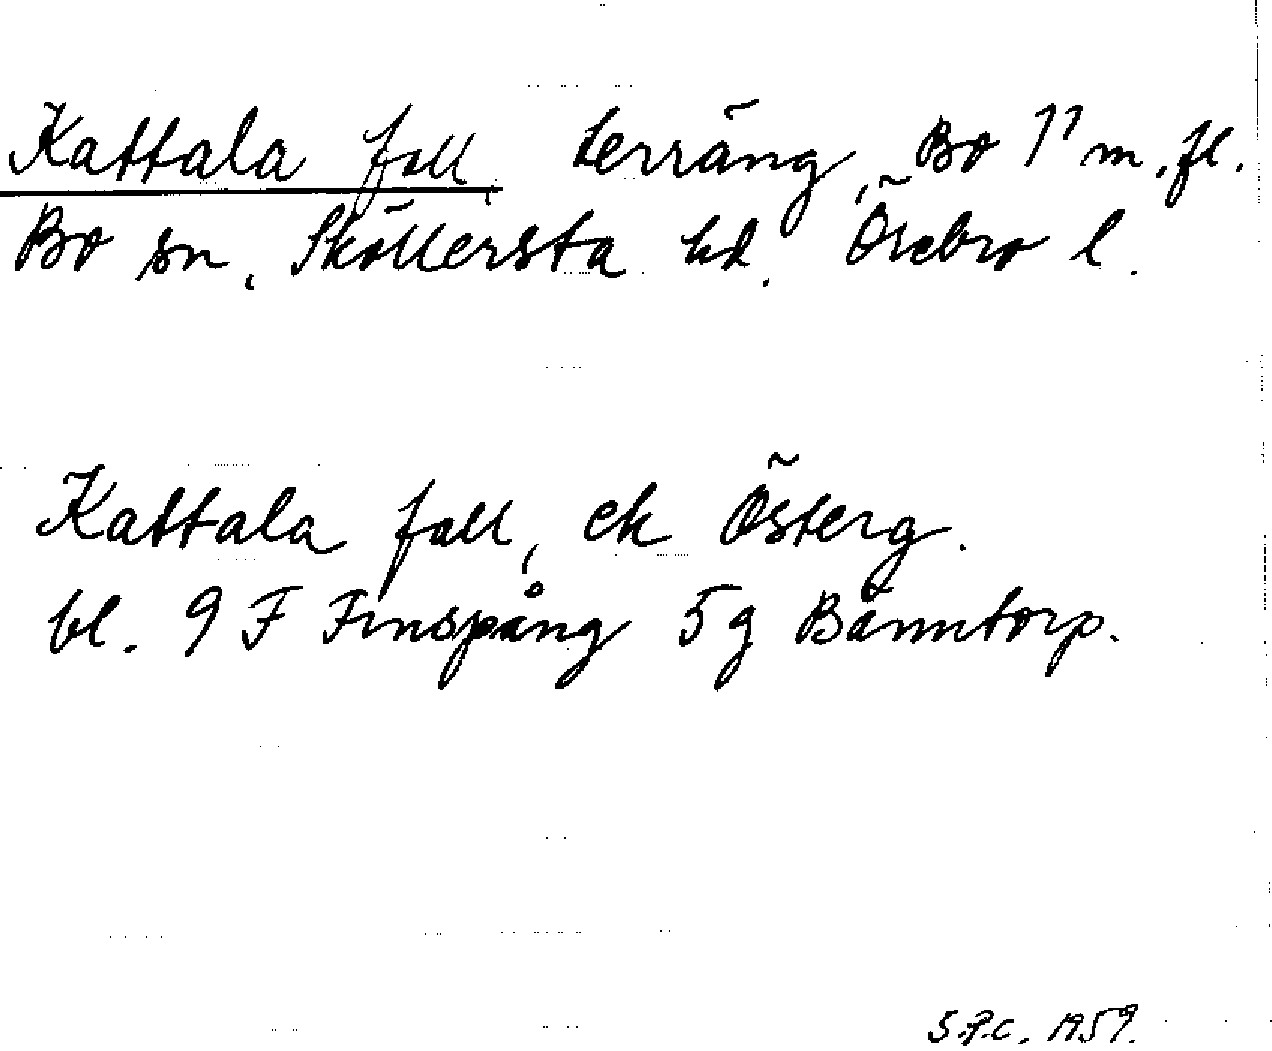 Kattala fall terräng, Bo 1¹ m.fl.
Bo sn, Sköllersta hd. Örebro l.
Kattala fall, ek Österg.
bl. 9 F Finspång 5 g Bänntorp.
S.P.C. 1959.